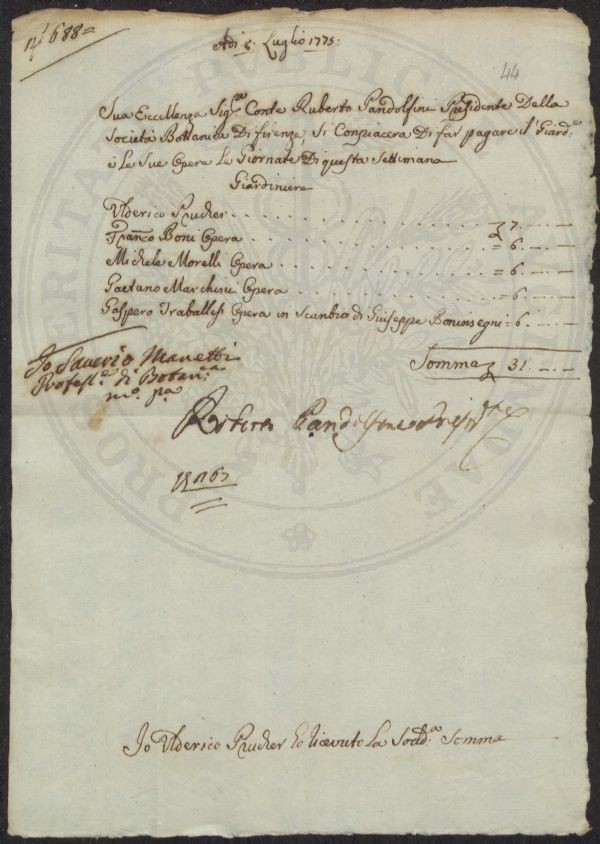 N° 688=
Adi 8: Luglio 1775:
44
Sua Eccellenza Sig.ª Conte Ruberto Pandolfini Presidente Della
Società Bottanica Di firenze, Si Conpiacera Di far pagare il Giard.e
è Le Sue Opere Le Giornate Di questa Settimana
Giardiniere
Ulderico Prucher . . . . . . 7. — . —
Franco Boni Opera . . . . . . = 6. — . —
Michele Morelli Opera . . . . . . = 6. — . —
Gaetano Marchini Opera . . . . . . = 6. — . —
Gaspero Traballesi Opera in Scanbio di Giuseppe Boninsegni = 6. — . —
Somma 31. — . —
Io Saverio Manetti
Profess.e di Botan.ca
m.o p.a
Ruberto Pandolfini Presid.te
PROSPERITATI PUBLICAE AUGENDAE
Io Ulderico Prucher ho ricevuto La Sodd.ª Somma